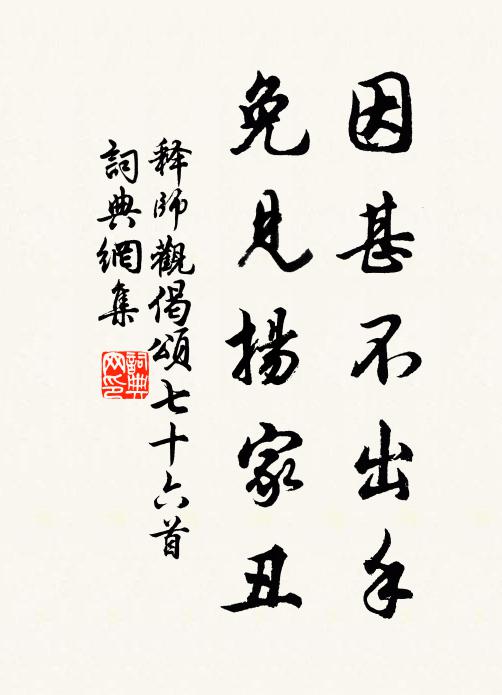 因甚不出手
免見揚家丑
释師觀偈頌七十六首
詞典網集
詞典网印